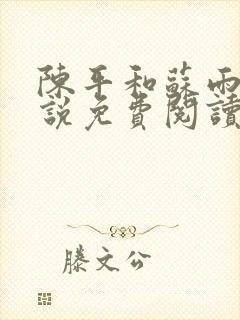 陳平和蘇雨
說免費閱讀
滕文公